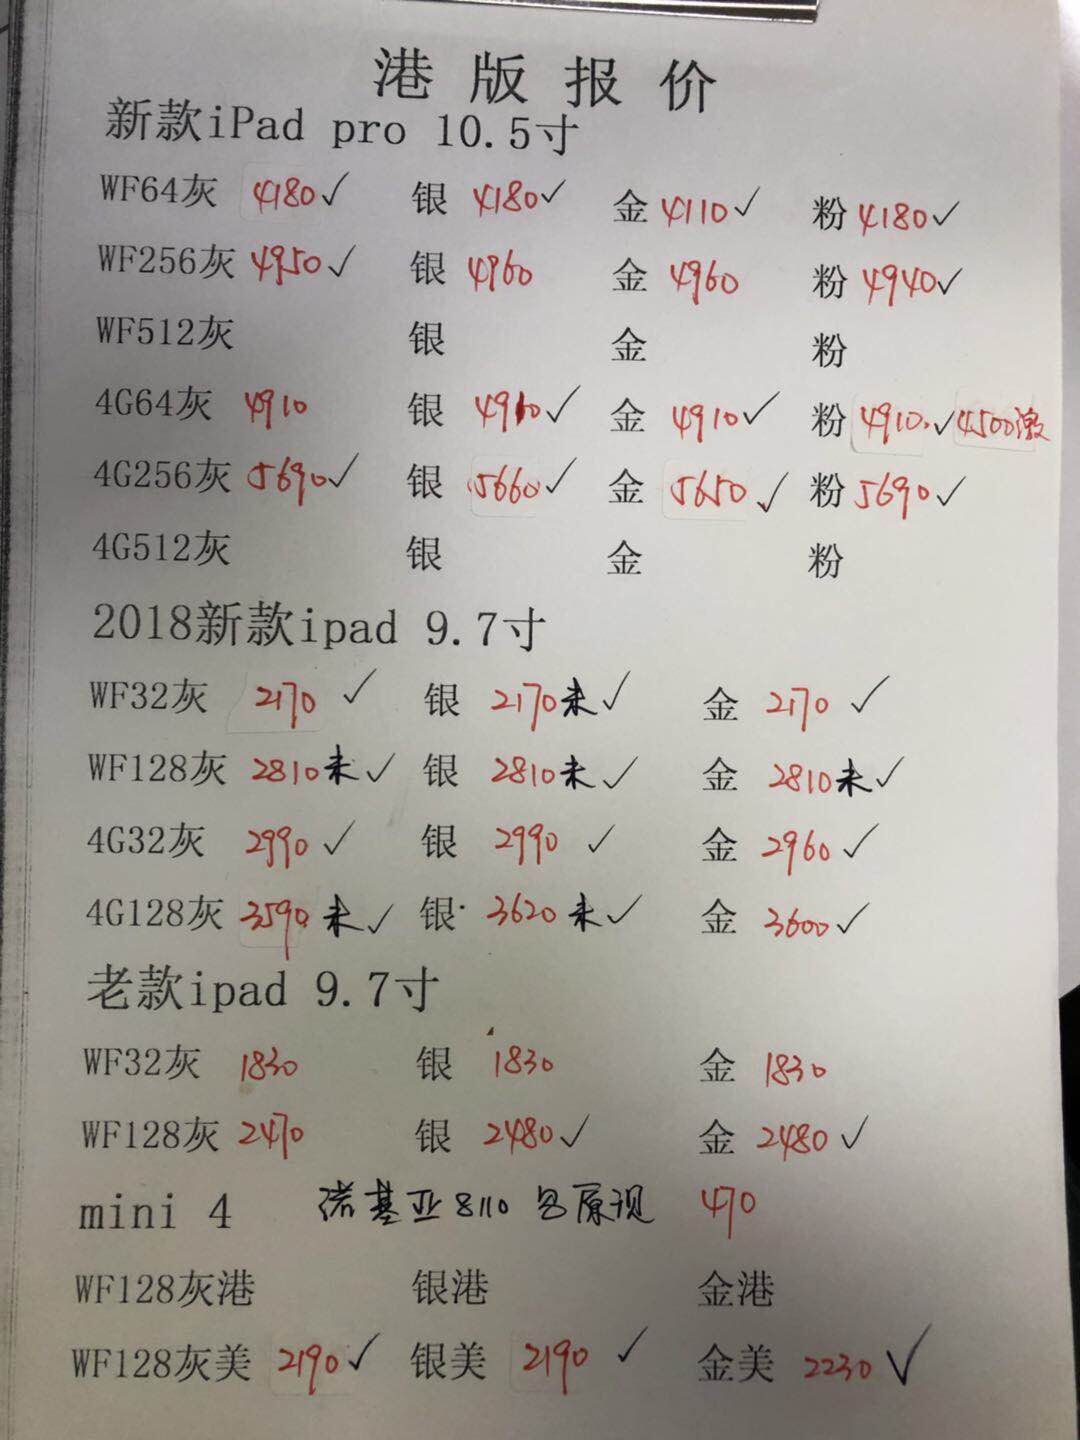 港版报价
新款iPad pro 10.5寸
WF64灰 4180✓ 银 4180✓ 金 4110✓ 粉 4180✓
WF256灰 4950✓ 银 4960 金 4960 粉 4940✓
WF512灰 银 金 粉
4G64灰 4910 银 4910✓ 金 4910✓ 粉 4910✓ 4500激
4G256灰 5690✓ 银 5660✓ 金 5650✓ 粉 5690✓
4G512灰 银 金 粉
2018新款ipad 9.7寸
WF32灰 2170✓ 银 2170未✓ 金 2170✓
WF128灰 2810未✓ 银 2810未✓ 金 2810未✓
4G32灰 2990✓ 银 2990✓ 金 2960✓
4G128灰 3590未✓ 银 3620未✓ 金 3600✓
老款ipad 9.7寸
WF32灰 1830 银 1830 金 1830
WF128灰 2470 银 2480✓ 金 2480✓
mini 4 诺基亚8110 原 470
WF128灰港 银港 金港
WF128灰美 2190✓ 银美 2190✓ 金美 2230✓